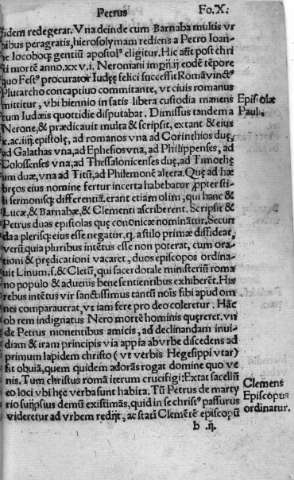 Petrus Fo.X.
fidem redegerat. Vna deinde cum Barnaba multis vr
bibus peragratis, hierosolymam rediens a Petro Ioan⸗
ne Iocoboq; gentiũ apostol⁹ eligitur. Hic aũt post chri
sti mortẽ anno.xxv.i. Neroniani impij.ij eodẽ tẽpore
quo Fest⁹ procurator Iudęę felici successit Romã vinct⁹
Plutarcho concaptiuo commitante, vt ciuis romanus
mittitur, vbi biennio in satis libera custodia manens
tum Iudæis quottidie disputabat. Dimissus tandem a
Nerone, & prædicauit multa & scripsit, extant & eius
x.ac.iiij.epistolę, ad romanos vna ad Corinthios duę,
ad Galathas vna, ad Ephesios vna, ad Philippenses, ad
Colossenses vna, ad Thessalonicenses duę, ad Timothe
um duæ, vna ad Titũ, ad Philemonẽ altera. Que ad hæ
bręos eius nomine fertur incerta habebatur ꝓpter sti⸗
li sermonisq; differentiã, erant etiam olim, qui hanc &
Lucæ, & Barnabæ, & Clementi ascriberent. Scripsit &
Petrus duas epistolas quę canonicæ nominãtur, Secun
da a plerisq; eius esse negatur. q̃ a stilo primæ dissideat,
verũ quia pluribus intẽtus esse non poterat, cum orati
oni & prædicationi vacaret, duos episcopos ordina⸗
uit Linum.s. & Cletũ, qui sacerdotale ministeriũ roma
no populo & aduenis bene sentientibus exhiberẽt. His
rebus intẽtus vir sanctissimus tantũ noĩs sibi apud om
nes comparauerat, vt iam fere pro deo coleretur, Hãc
ob rem indignatus Nero mortẽ hominis quęreret, vn
de Petrus monentibus amicis, ad declinandam inui⸗
diam & iram principis via appia ab vrbe discedens ad
primum lapidem christo ( vt verbis Hegesippi vtar)
fit obuiã, quem quidem adorãs rogat domine quo ve
nis. Tum christus romã iterum crucifigi: Extat sacellũ
eo loci vbi hęc verba sunt habita. Tũ Petrus de marty
rio suijpsius demũ existimãs, quod in se christ⁹ passurus
videretur ad vrbem redijt, ac stati Clemẽtẽ episcopũ
b .ij.
Epistolæ
Pauli.
Clemens
Episcopus
ordinatur.